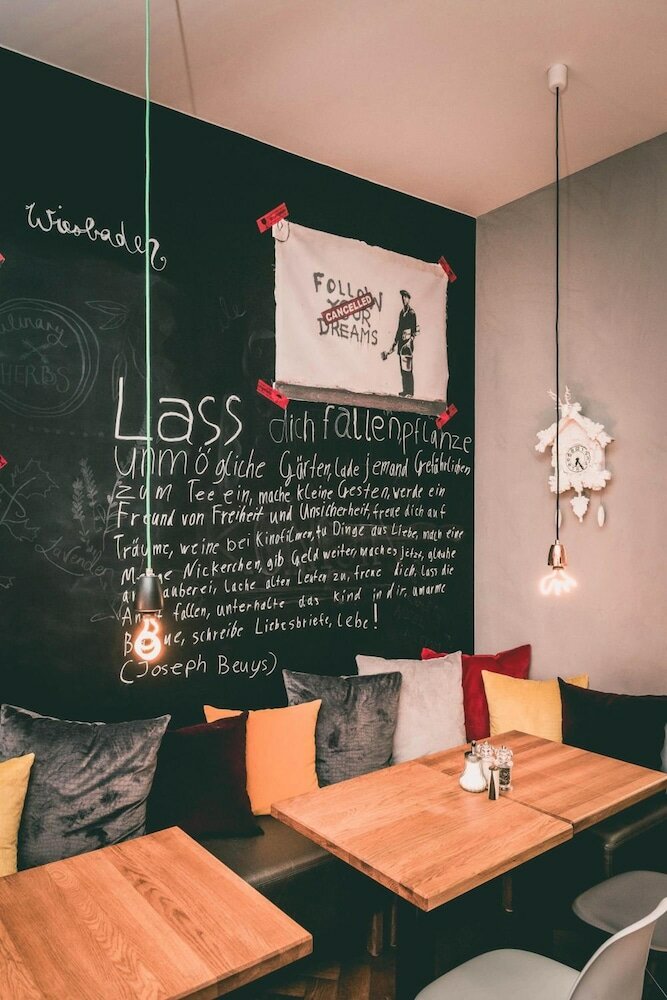 Wiesbaden
FOLLOW
YOUR
CANCELLED
DREAMS
Culinary
HERBS
Lass dich fallen, pflanze
unmögliche Gärten, lade jemand Gefährlichen
zum Tee ein, mache kleine Gesten, werde ein
Freund von Freiheit und Unsicherheit, freue dich auf
Träume, weine bei Kinofilmen, tu Dinge aus Liebe, mach eine
Menge Nickerchen, gib Geld weiter, mach es jetzt, glaube
an Zauberei, lache alten Leuten zu, freue dich, lass die
Angst fallen, unterhalte das kind in dir, umarme
Bäume, schreibe Liebesbriefe, lebe!
(Joseph Beuys)
Lavendel